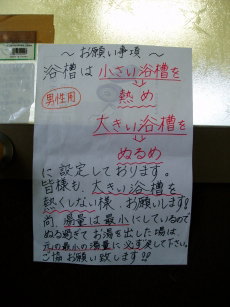 ～お願い事項～
浴槽は小さい浴槽を
男性用
熱め
大きい浴槽を
ぬるめ
に設定しております。
皆様も、大きい浴槽を
熱くしない様、お願いします!!
尚、湯量は最小にしているので
ぬる過ぎてお湯を出した場は、
元の最小の湯量に必ず戻して下さい。
ご協お願い致します!!